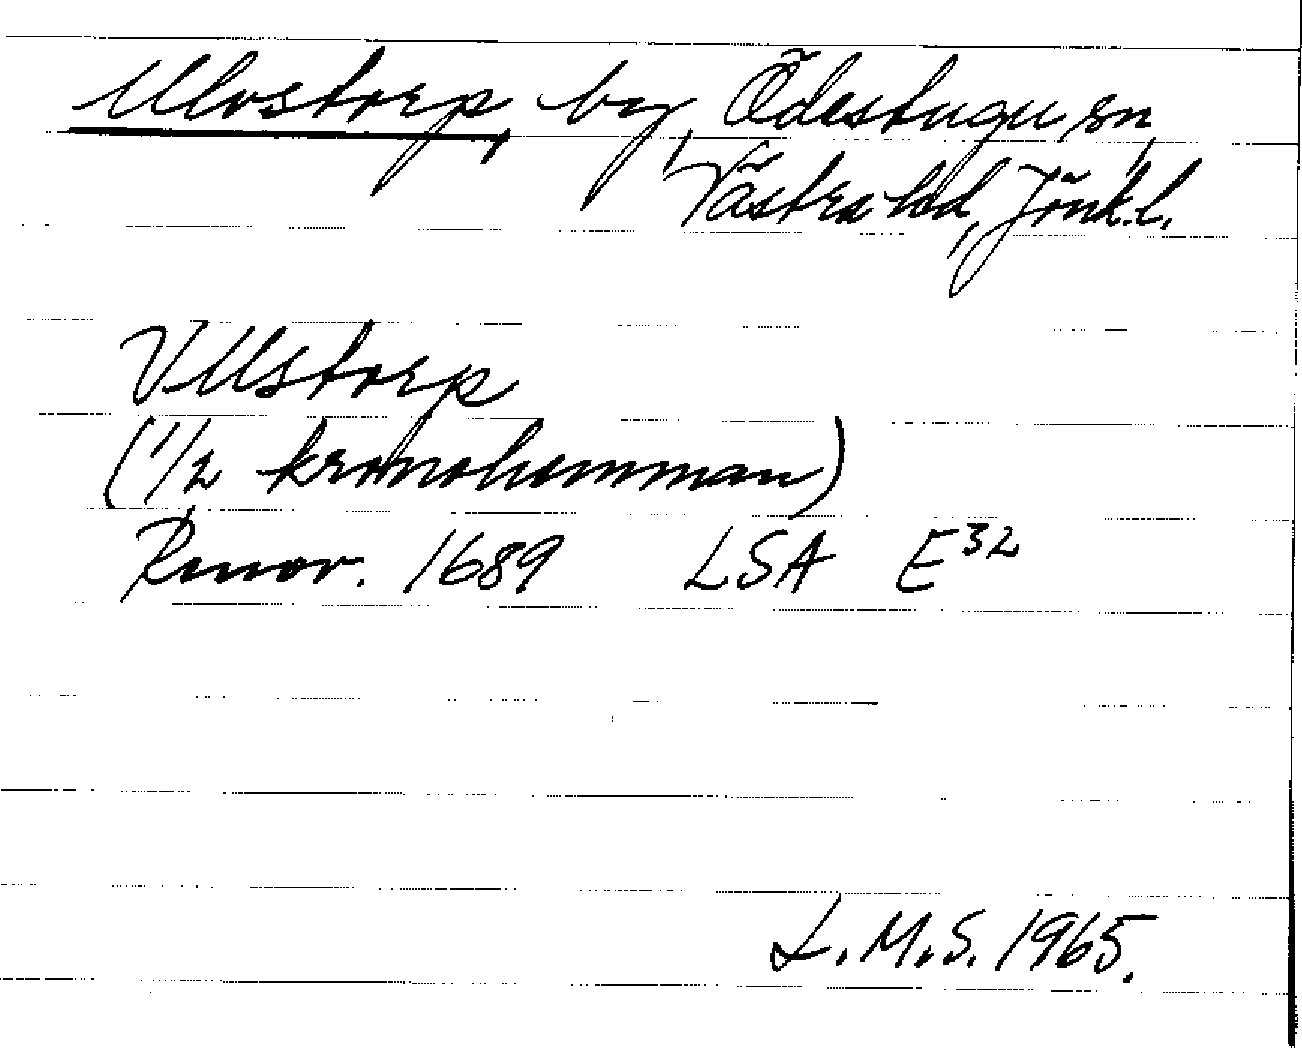 Ulvstorp, by, Ödestugu sn,
Västra hd, Jönk.l.
Vllstorp
(1/2 kronohemman)
Renov. 1689 LSA E32
L.M.S. 1965.